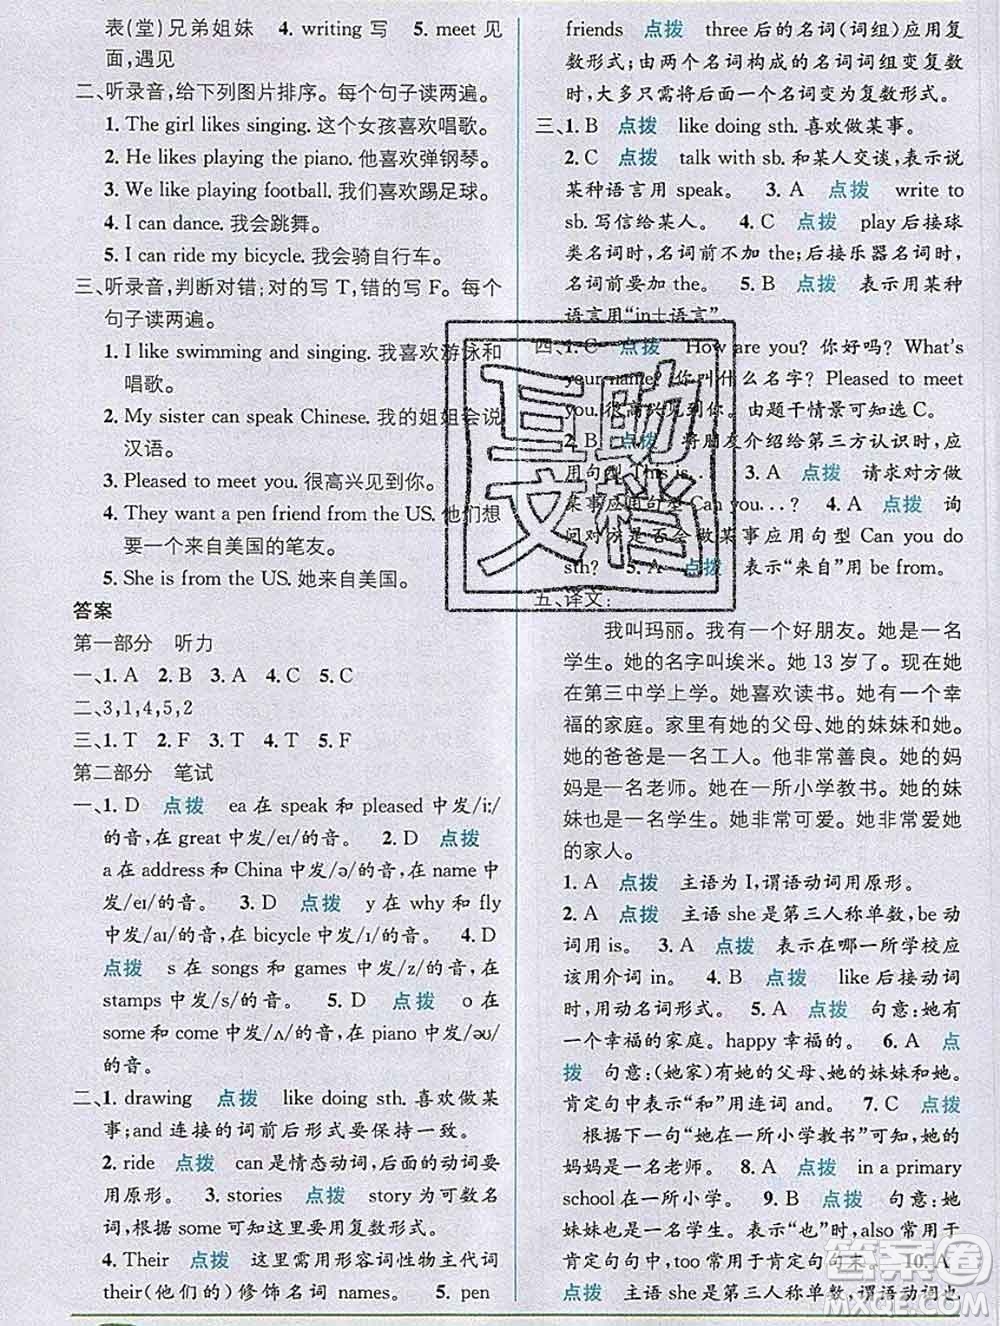 表(堂)兄弟姐妹 4. writing 写 5. meet 见
面,遇见
二、听录音,给下列图片排序。每个句子读两遍。
1. The girl likes singing. 这个女孩喜欢唱歌。
2. He likes playing the piano. 他喜欢弹钢琴。
3. We like playing football. 我们喜欢踢足球。
4. I can dance. 我会跳舞。
5. I can ride my bicycle. 我会骑自行车。
三、听录音,判断对错;对的写 T,错的写 F。每个
句子读两遍。
1. I like swimming and singing. 我喜欢游泳和
唱歌。
2. My sister can speak Chinese. 我的姐姐会说
汉语。
3. Pleased to meet you. 很高兴见到你。
4. They want a pen friend from the US. 他们想
要一个来自美国的笔友。
5. She is from the US. 她来自美国。
答案
第一部分 听力
一、1. A 2. B 3. A 4. B 5. C
二、3,1,4,5,2
三、1. T 2. F 3. T 4. T 5. F
第二部分 笔试
一、1. D 点拨 ea 在 speak 和 pleased 中发/iː/
的音,在 great 中发/eɪ/的音。 2. D 点拨
a 在 address 和 China 中发/ə/的音,在 name 中
发/eɪ/的音。 3. D 点拨 y 在 why 和 fly
中发/aɪ/的音,在 bicycle 中发/ɪ/的音。 4. D
点拨 s 在 songs 和 games 中发/z/的音,在
stamps 中发/s/的音。 5. D 点拨 o 在
some 和 come 中发/ʌ/的音,在 piano 中发/əʊ/
的音。
二、1. drawing 点拨 like doing sth. 喜欢做某
事;and 连接的词前后形式要保持一致。
2. ride 点拨 can 是情态动词,后面的动词要
用原形。 3. stories 点拨 story 为可数名
词,根据 some 可知这里要用复数形式。
4. Their 点拨 这里需用形容词性物主代词
their(他们的)修饰名词 names。 5. pen
friends 点拨 three 后的名词(词组)应用复
数形式;由两个名词构成的名词词组变复数
时,大多只需将后面一个名词变为复数形式。
三、1. B 点拨 like doing sth. 喜欢做某事。
2. C 点拨 talk with sb. 和某人交谈,表示说
某种语言用 speak。 3. A 点拨 write to
sb. 写信给某人。 4. C 点拨 play 后接球
类名词时,名词前不加 the;后接乐器名词时,
名词前要加 the。 5. B 点拨 表示用某种
语言用“in+语言”。
四、1. C 点拨 How are you? 你好吗? What's
your name? 你叫什么名字? Pleased to meet
you. 很高兴见到你。由题干情景可知选 C。
2. B 点拨 将朋友介绍给第三方认识时,应
用句型 This is... 3. A 点拨 请求对方做
某事应用句型 Can you...? 4. A 点拨 询
问对方是否会做某事应用句型 Can you do
sth? 5. A 点拨 表示“来自”用 be from.
五、译文:
我叫玛丽。我有一个好朋友。她是一名
学生。她的名字叫埃米。她 13 岁了。现在她
在第三中学上学。她喜欢读书。她有一个幸
福的家庭。家里有她的父母、她的妹妹和她。
她的爸爸是一名工人。他非常善良。她的妈
妈是一名老师。她在一所小学教书。她的妹
妹也是一名学生。她非常可爱。她非常爱她
的家人。
1. A 点拨 主语为 I,谓语动词用原形。
2. A 点拨 主语 she 是第三人称单数,be 动
词用 is。 3. A 点拨 表示在哪一所学校应
该用介词 in。 4. B 点拨 like 后接动词
时,用动名词形式。 5. A 点拨 句意:她有
一个幸福的家庭。happy 幸福的。 6. A 点
拨 句意:(她家)有她的父母、她的妹妹和她。
肯定句中表示“和”用连词 and。 7. C 点拨
根据下一句“她在一所小学教书”可知,她的
妈妈是一名老师。 8. A 点拨 in a primary
school 在一所小学。 9. B 点拨 句意:她
妹妹也是一名学生。表示“也”时,also 常用于
肯定句句中,too 常用于肯定句句末。 10. A
点拨 主语 she 是第三人称单数,谓语动词
互助
文档
答案圈
MXQE.COM